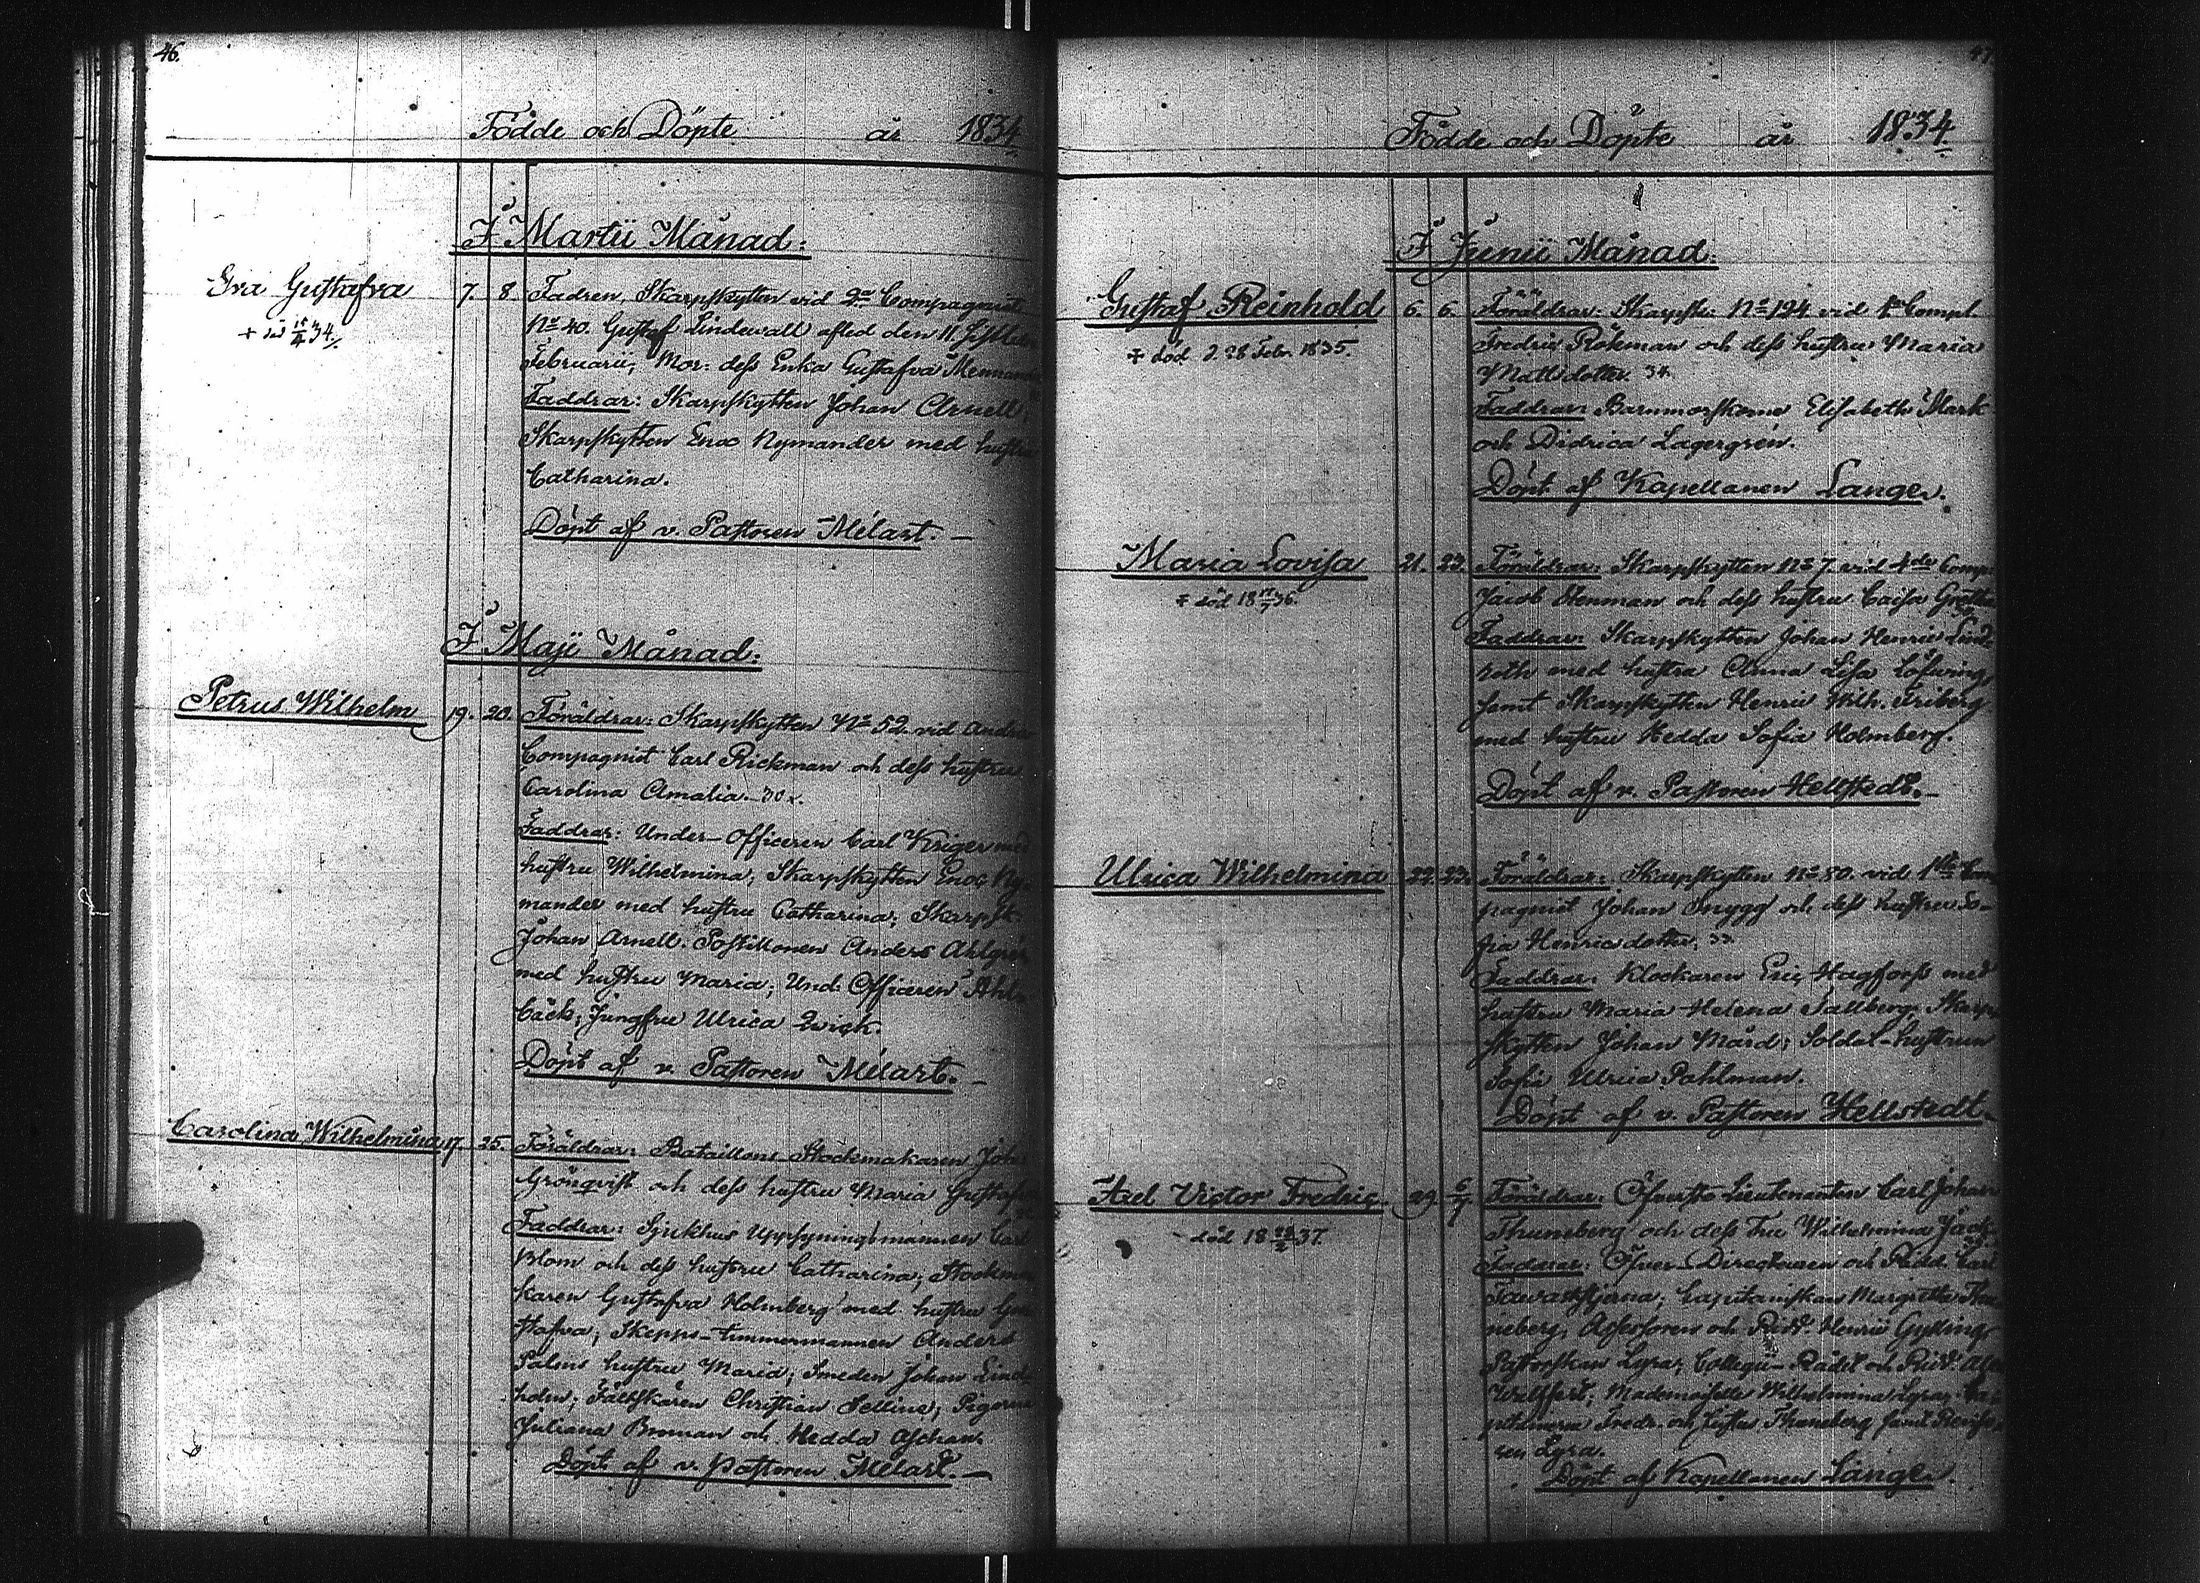 46.
Födde och Döpte år 1834
I Martii Månad:
Eva Gustafva 7. 8. Fadren, Skarpskytten vid 2ra Compagniet
+ död 15/4 34. No 40. Gustaf Lindewall afled den 11.
Februarii; Mor: dess Enka Gustafva
Faddrar: Skarpskytten Johan Arnell;
Skarpskytten Enoc Nymander med hustru
Catharina.
Döpt af v. Pastoren Mélart.
I Maji Månad:
Petrus Wilhelm 19. 20. Föräldrar: Skarpskytten No 52. vid Andra
Compagniet Carl Rickman och dess hustru
Carolina Amalia. 30
Faddrar: Under-Officeren Carl Kriger med
hustru Wilhelmina; Skarpskytten Enoc Ny-
mander med hustru Catharina; Skarpsk.
Johan Arnell. Postillonen Anders Ahlgren
med hustru Maria; Und: Officeren Ahl-
bäck; Jungfru Ulrica Qvick.
Döpt af v. Pastoren Mélart.
Carolina Wilhelmina 17. 25. Föräldrar: Bataillons Stockmakaren Joh:
Grönqvist och dess hustru Maria
Faddrar: Sjukhus Uppsyningsmannen Carl
Blom och dess hustru Catharina; Stockma-
karen Gustafva Holmberg med hustru Gu-
stafva; Skepps-timmermannen Anders
Palms hustru Maria; Smeden Johan Lind-
holm; Fältskären Christian Selline; Pigorna
Juliana Broman och Hedda Aschan.
Döpt af v. Pastoren Mélart.
47.
Födde och Döpte år 1834
I Junii Månad:
Gustaf Reinhold 6. 6. Föräldrar: Skarpsk: No 124 vid 1a Comp.
+ död d. 28 Febr. 1835. Fredric Rökman och dess hustru Maria
Mattsdotter. 34.
Faddrar: Barnmorskorne Elisabeth Mark
och Didrica Lagergrén.
Döpt af Kapellanen Lange.
Maria Lovisa 21. 23. Föräldrar: Skarpskytten No 7 vid 4de Comp.
+ död 18 17/7 36. Jacob Stenman och dess hustru Caisa
Faddrar: Skarpskytten Johan Henric Lind-
roth med hustru Anna Lisa Löfving,
samt Skarpskytten Henric Wilh. Friberg
med hustru Hedda Sofia Holmberg.
Döpt af v. Pastoren Hellstedt.
Ulrica Wilhelmina 22. 23. Föräldrar: Skarpskytten No 80. vid 1sta Com-
pagniet Johan Snygg och dess hustru So-
fia Henricsdotter. 33.
Faddrar: Klockaren Eric Hagforss med
hustru Maria Helena Sallberg; Skarp-
skytten Johan Mård; Soldat-hustrun
Sofia Ulrica Pahlman.
Döpt af v. Pastoren Hellstedt.
Axel Victor Fredric 29. 6/7 Föräldrar: Öfverste Lieutenanten Carl Johan
död 18 28/2 37. Thuneberg och dess Fru Wilhelmina
Faddrar: Öfver-Directeuren och Ridd. Carl
Tawaststjerna; Capitainskan Margretha Thu-
neberg, Assessoren och Ridd. Henric Gylling;
Pastorskan Lyra; Collegii-Rådet och Ridd.
Mademoiselle Wilhelmina Lyra; Ca-
pitainerne Fredr. och Thuneberg samt
Lyra.
Döpt af Kapellanen Lange.